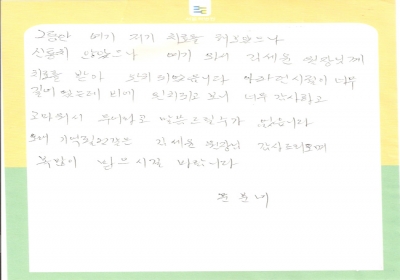 그동안 여기 저기 치료를 하였으나
신통치 않았으나 여기 와서 김세윤 원장님께
치료를 받아 완치 되었습니다 아파던 시절이 너무
길어 했는데 이제 완치되고 보니 너무 감사하고
고마워서 무어라고 말씀드릴수가 없습니다
김세윤 원장님 감사드리오며
복많이 받으시길 바랍니다